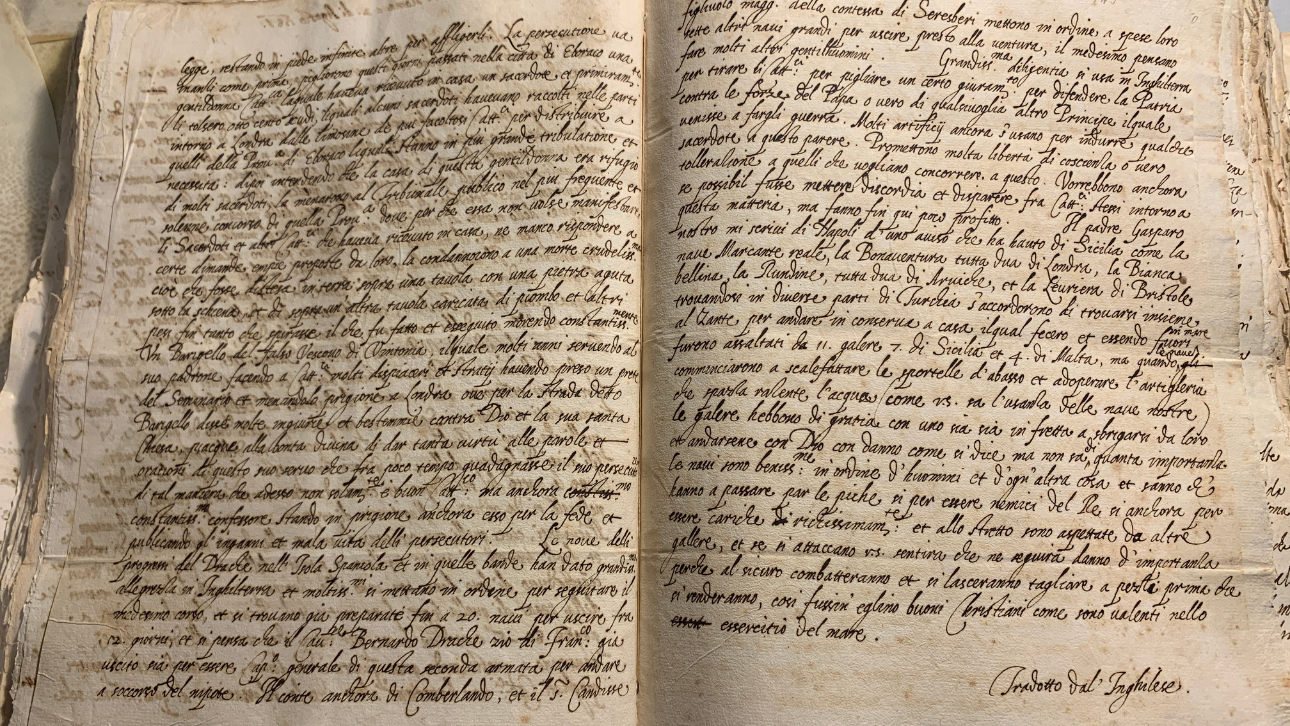 legge, restando in piede infinite altre per affligerli. La persecutione va
innanzi come prima, pigliorno questi giorni passati nella città di Eboraco una
gentildonna Catt.ca laquale haveva ricevuto in casa un sacerdote et primieram.te
li tolsero otto cento scudi, li quali alcuni sacerdoti havevano raccolti nelle parti
intorno a Londra dalle limosine de piu facoltosi Catt.ci per distribuire a
quelli della Prov.a d'Eboraco liquali stanno in piu grande tribulatione et
necessità: dipoi intendendo che la casa di questa gentildonna era rifugio
di molti sacerdoti, la menarono al Tribunale publico nel piu frequente et
solenne concorso di quella Prov.a dove per che essa non volse manifestare
li Sacerdoti et altri Catt.ci che haveva ricevuto in casa, ne manco rispondere a
certe dimande empie proposte da loro, la condannorono a una morte crudeliss.ma
cioè che fosse distesa in terra sopra una tavola con una pietra aguta
sotto la schiena, et di sopra un altra tavola caricata di piombo et d'altri
pesi fin tanto che spirasse, il che fu fatto et esseguito morendo constantiss.mente
Un Barigello del falso Vescovo di Vintonia, ilquale molti anni servendo al
suo padrone facendo a Catt.ci molti dispiaceri et stratij havendo preso un prete
del Seminario et menandolo prigione a Londra ove per la strada detto
Barigello disse molte ingiurie et bestemmie contra Dio et la sua santa
Chiesa, piacque alla bontà divina di dar tanta virtù alle parole et
orationi di questo suo servo che fra poco tempo guadagnasse il mio persecutore
di tal maniera che adesso non solam.te è buon Catt.co ma anchora constiss.mo
constantiss.mo confessore stando in prigione anchora esso per la fede et
publicando gl'inganni et mala vita delli persecutori. Le nove delli
progressi del Drache nell'Isola Spaniola et in quelle bande han dato grandiss.ma
allegrezza in Inghilterra et moltiss.mi si mettano in ordine per seguitare il
medesimo corso, et si trovano già preparate fin a 20. navi per uscire fra
12. giorni, et si pensa che il Bernardo Drache zio di Fran.co già
uscito sia per essere Cap.o generale di questa seconda armata per andare
a soccorso del nipote. Il conte anchora di Comberlando, et il s.r Candisse
figliuolo magg. della contessa di Seresberi mettono in ordine a spese loro
sette altre navi grandi per uscire presto alla ventura, il medesimo pensano
fare molti altri gentilhuomini. Grandiss.ma diligentia si usa in Inghilterra
per tirare li Catt.ci per pigliare un certo giuram.to per difendere la Patria
contra le forze del Papa o vero di qualsivoglia altro Principe ilquale
venisse a fargli guerra. Molti artificij ancora s'usano per indurre qualche
sacerdote a questo parere. Promettono molta libertà di coscenza o vero
tolleratione a quelli che vogliano concorrere a questo. Vorrebbono anchora
se possibil fusse mettere discordia et disparere fra Catt.ci stessi intorno a
questa matteria, ma fanno fin qui poco profitto. Il padre Gasparo
nostro mi scrivi di Napoli d'uno aviso che ha hauto di Sicilia come la
nave Marcante reale, la Bonaventura tutta dua di Londra, la Bianca
bellina, la Rundine, tutta dua di Arviche, et la Leuriera di Bristole
trovandosi in diverse parti di Turchea s'accordorono di trovarsi insieme
al Zante per andare in conserva a casa ilqual fecero et essendo fuori
furono assaltati da 11. galere 7. di Sicilia et 4. di Malta, ma quando gli
comminciarono a scalefattare le sportelle d'abasso et adoperare l'artigleria
che spazza ralente l'acqua (come vs. sa l'usanza delle nave nostre)
le galere hebbono di gratia con uno sia sia in fretta a sbrigarsi da loro
et andarsene con Dio con danno come si dice ma non sa di quanta importanza
le navi sono beniss.mo in ordine d'huomini et d'ogn'altra cosa et sanno ch'
hanno a passare par le piche, si per essere nemici del Re, si anchora per
essere cariche di richissimam.te et allo stretto sono aspettate da altre
galere, et se si attaccano v.s. sentira che ne seguira danno d'importanza
perche al sicuro combatteranno et si lasceranno tagliare a pezzi prima che
si renderanno, così fussin eglino buoni Christiani come sono valenti nello
essercitio del mare.
Tradotto dal'Inghilese.